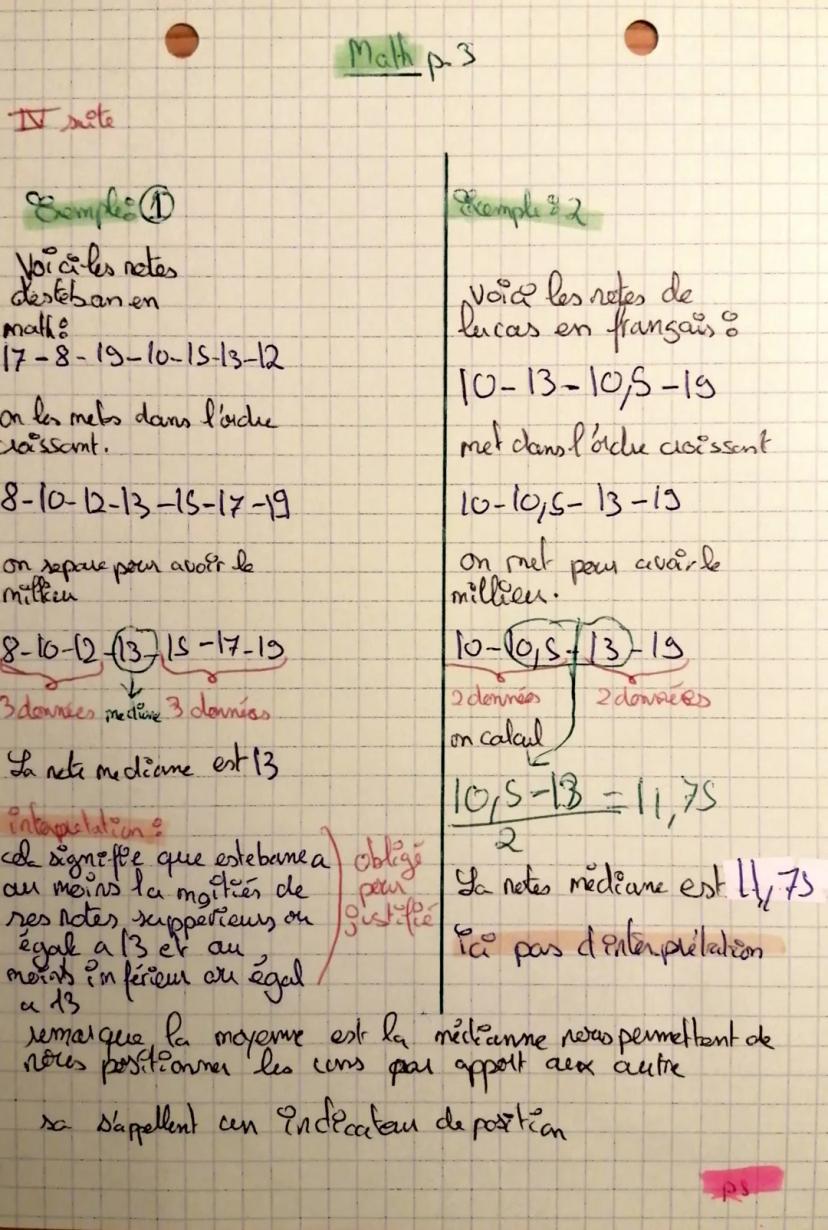 Math p.3
IV suite
Exemple: 1
Voici les notes
d'esteban en
math:
17-8-19-10-15-13-12
on les mets dans l'ordre
croissant.
8-10-12-13-15-17-19
on separe pour avoir le
milieu
8-10-12-13-15-17-19
3 données mediane 3 données
La note mediane est 13
interpretation:
cela signifie que estebane a
au moins la moitiés de
ses notes suppérieurs ou
égal a 13 et au
moins inférieur ou égal
a 13
obligé
pour
justifié
Exemple: 2
Voici les notes de
lucas en français:
10-13-10,5-19
met dans l'ordre croissant
10-10,5-13-19
on met pour avoir le
millieu.
10-10,5-13-19
2 données 2 données
on calcul
10,5-13 = 11,75
2
La notes médiane est 11,75
ici pas d'interprétation
remarque la moyenne est la médianne nous permettent de
nous positionner les uns par apport aux autre
sa s'appellent un indicateur de position
p5